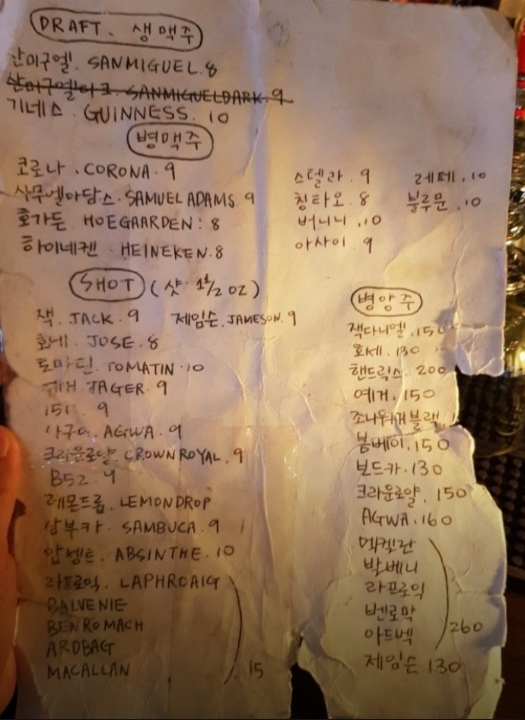 DRAFT. 생맥주
산미구엘. SANMIGUEL. 8
산미구엘다크. SANMIGUELDARK. 9
기네스. GUINNESS. 10
병맥주
코로나. CORONA. 9
사무엘아담스. SAMUEL ADAMS 9
호가든 HOEGAARDEN: 8
하이네켄. HEINEKEN. 8
스텔라. 9
칭타오. 8
버니니. 10
아사이. 9
레페. 10
블루문. 10
SHOT (샷 1½ OZ)
잭. JACK. 9
제임슨. JAMESON. 9
호세. JOSE. 8
토마틴. TOMATIN. 10
예거 JAGER. 9
151. 9
아구아. AGWA. 9
크라운로얄. CROWN ROYAL. 9
B52. 9
레몬드롭. LEMONDROP
삼부카. SAMBUCA. 9
압쌩트. ABSINTHE. 10
라프로익. LAPHROAIG
BALVENIE
BENROMACH
ARDBAG
MACALLAN
15
병양주
잭다니엘. 150
호세. 130
핸드릭스. 200
예거. 150
조니워커블랙
봄베이. 150
보드카. 130
크라운로얄. 150
AGWA. 160
멕켈란
발베니
라프로익
벤로막
아드벡
260
제임슨 130